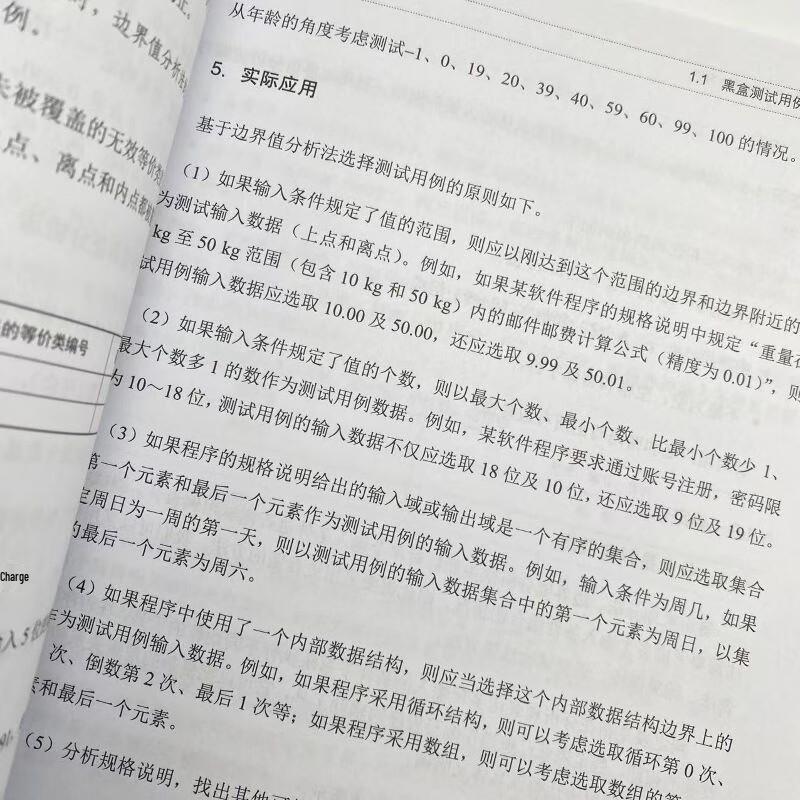 例。
时，边界值分析法
未被覆盖的无效等价类
点、离点和内点都
的等价类编号
Charge
入5位
1.1 黑盒测试用例
从年龄的角度考虑测试−1、0、19、20、39、40、59、60、99、100 的情况。
5. 实际应用
基于边界值分析法选择测试用例的原则如下。
（1）如果输入条件规定了值的范围，则应以刚达到这个范围的边界和边界附近的
为测试输入数据（上点和离点）。例如，如果某软件程序的规格说明中规定“重量在
kg 至 50 kg 范围（包含 10 kg 和 50 kg）内的邮件邮费计算公式（精度为 0.01）”，则
试用例输入数据应选取 10.00 及 50.00，还应选取 9.99 及 50.01。
（2）如果输入条件规定了值的个数，则以最大个数、最小个数、比最小个数少 1、
最大个数多 1 的数作为测试用例数据。例如，某软件程序要求通过账号注册，密码限
为 10～18 位，测试用例的输入数据不仅应选取 18 位及 10 位，还应选取 9 位及 19 位。
（3）如果程序的规格说明给出的输入域或输出域是一个有序的集合，则应选取集合
第一个元素和最后一个元素作为测试用例的输入数据。例如，输入条件为周几，如果
定周日为一周的第一天，则以测试用例的输入数据集合中的第一个元素为周日，以集
的最后一个元素为周六。
（4）如果程序中使用了一个内部数据结构，则应当选择这个内部数据结构边界上的
作为测试用例输入数据。例如，如果程序采用循环结构，则可以考虑选取循环第 0 次、
次、倒数第 2 次、最后 1 次等；如果程序采用数组，则可以考虑选取数组的第
素和最后一个元素。
（5）分析规格说明，找出其他可